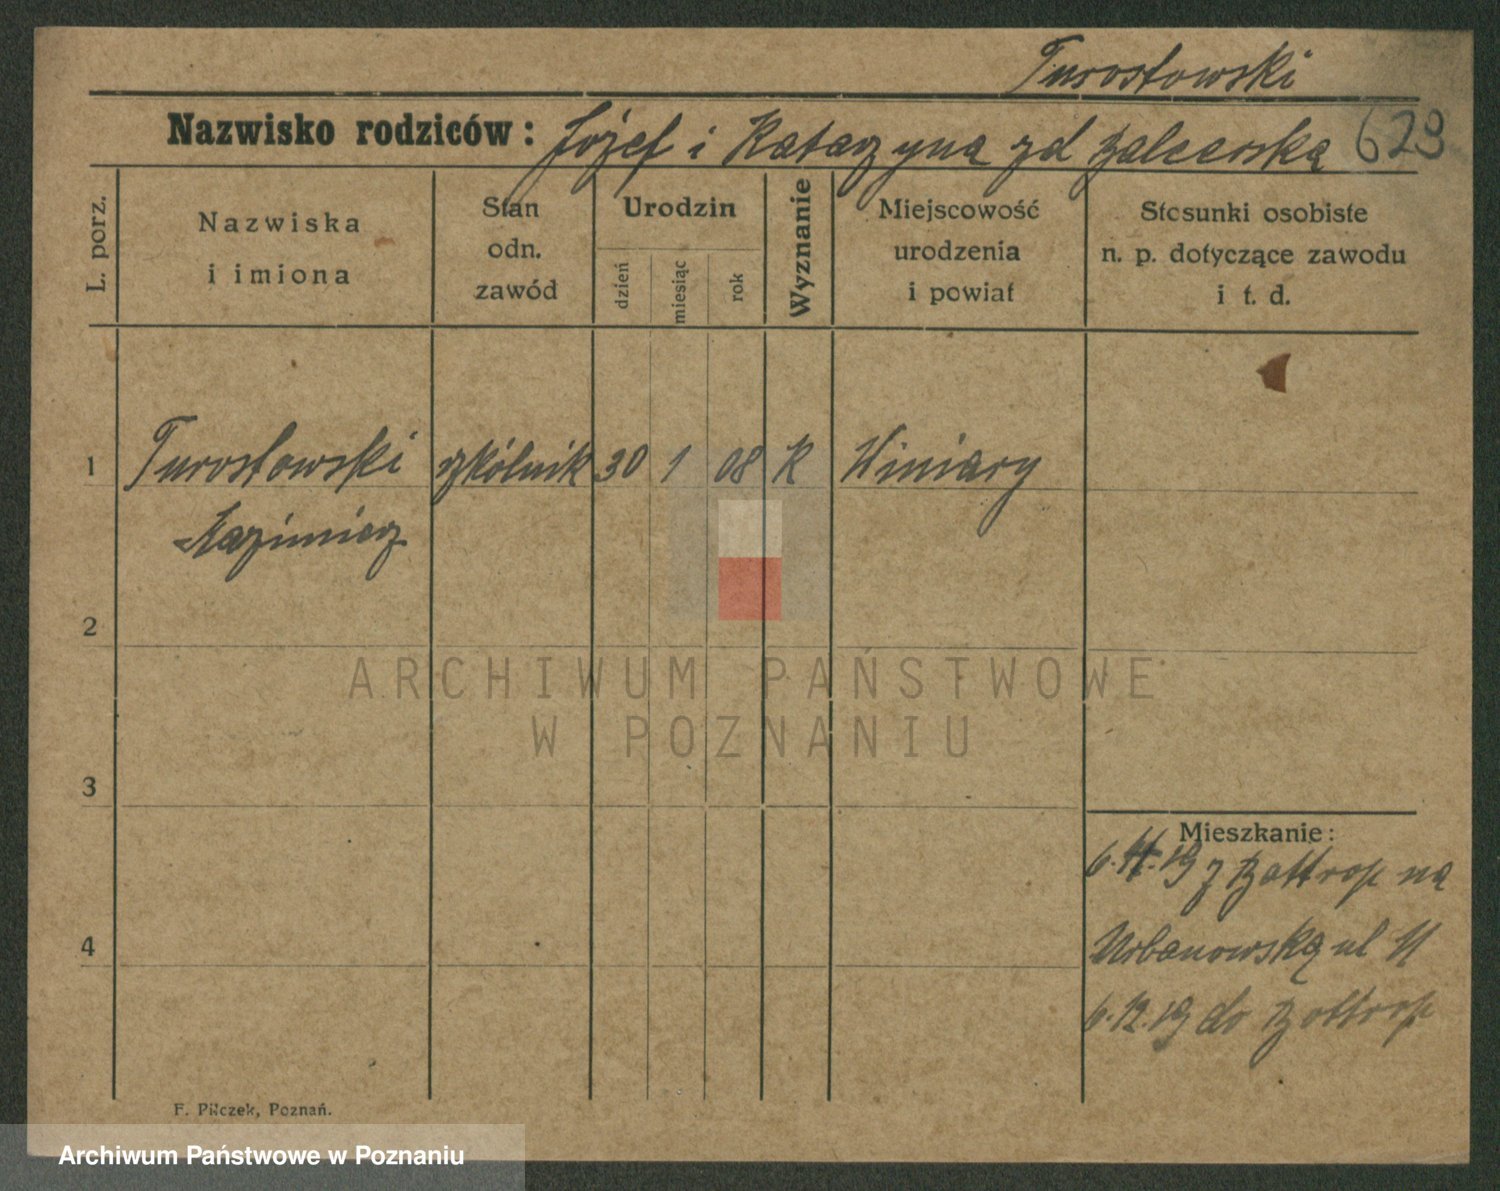 Turostowski
Nazwisko rodziców: Józef i Katarzyna zd Balcerska 629
L. porz.
Nazwiska
i imiona
Stan
odn.
zawód
Urodzin
dzień
miesiąc
rok
Wyznanie
Miejscowość
urodzenia
i powiat
Stosunki osobiste
n. p. dotyczące zawodu
i t. d.
1 Turostowski szkólnik 30 1 08 K Winiary
Kazimierz
2
ARCHIWUM PAŃSTWOWE
W POZNANIU
3
Mieszkanie:
6.11.19 z Bottrop na
4
Urbanowską ul 11
6.12.19 do Bottrop
F. Pilczek, Poznań.
Archiwum Państwowe w Poznaniu